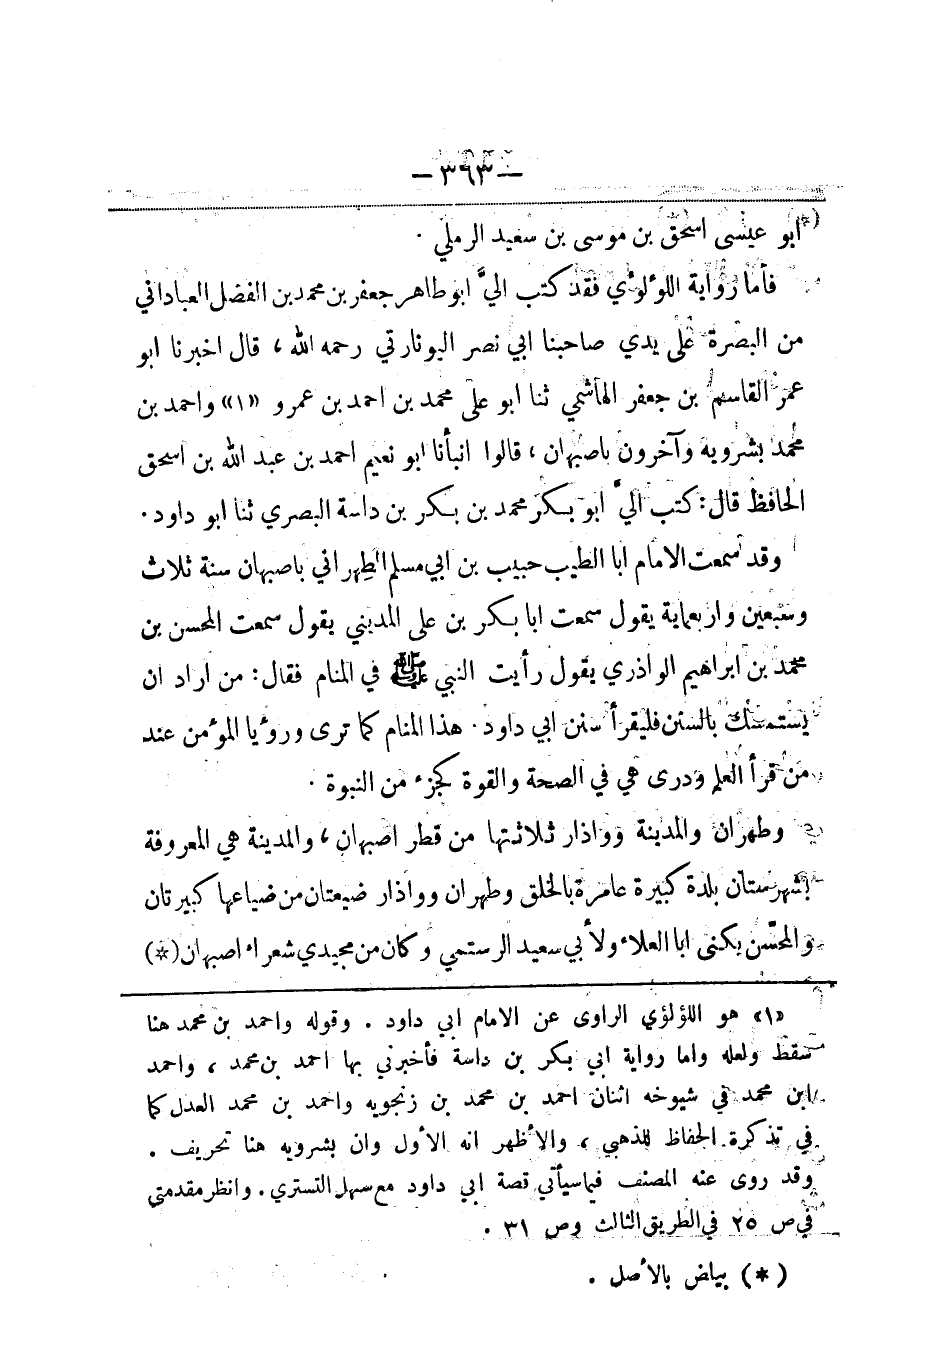 — ٣٦٣ —
(* ابو عيسى اسحق بن موسى بن سعيد الرملي .
فأما رواية اللؤلؤي فقد كتب اليَّ ابو طاهر جعفر بن محمد بن الفضل العباداني
من البصرة على يدي صاحبنا ابي نصر اليونارتي رحمه الله ، قال اخبرنا ابو
عمر القاسم بن جعفر الهاشمي ثنا ابو علي محمد بن احمد بن عمرو «١» واحمد بن
محمد بشرويه وآخرون باصبهان ، قالوا انبأنا ابو نعيم احمد بن عبد الله بن اسحق
الحافظ قال : كتب اليَّ ابو بكر محمد بن بكر بن داسة البصري ثنا ابو داود .
وقد سمعت الامام ابا الطيب حبيب بن ابي مسلم الطِهراني باصبهان سنة ثلاث
وسبعين واربعماية يقول سمعت ابا بكر بن علي المديني يقول سمعت المحسن بن
محمد بن ابراهيم الواذري يقول رأيت النبي ﷺ في المنام فقال : من اراد ان
يستمسك بالسنن فليقرأ سنن ابي داود . هذا المنام كما ترى ورؤيا المؤمن عند
من قرأ العلم ودرى هي في الصحة والقوة كجزء من النبوة .
وطهران والمدينة وواذار ثلاثتها من قطر اصبهان ، والمدينة هي المعروفة
بشهرستان بلدة كبيرة عامرة بالخلق وطهران وواذار ضيعتان من ضياعها كبيرتان
والمحسّن يكنى ابا العلاء ولأبي سعيد الرستمي وكان من مجيدي شعراء اصبهان (*)
«١» هو اللؤلؤي الراوى عن الامام ابي داود . وقوله واحمد بن محمد هنا
سقط ولعله واما رواية ابي بكر بن داسة فأخبرني بها احمد بن محمد ، واحمد
ابن محمد في شيوخه اثنان احمد بن محمد بن زنجويه واحمد بن محمد العدل كما
في تذكرة الحفاظ للذهبي ، والأظهر انه الأول وان بشرويه هنا تحريف .
وقد روى عنه المصنف فيما سيأتي قصة ابي داود مع سهل التستري . وانظر مقدمتي
في ص ٢٥ في الطريق الثالث وص ٣١ .
(*) بياض بالأصل .